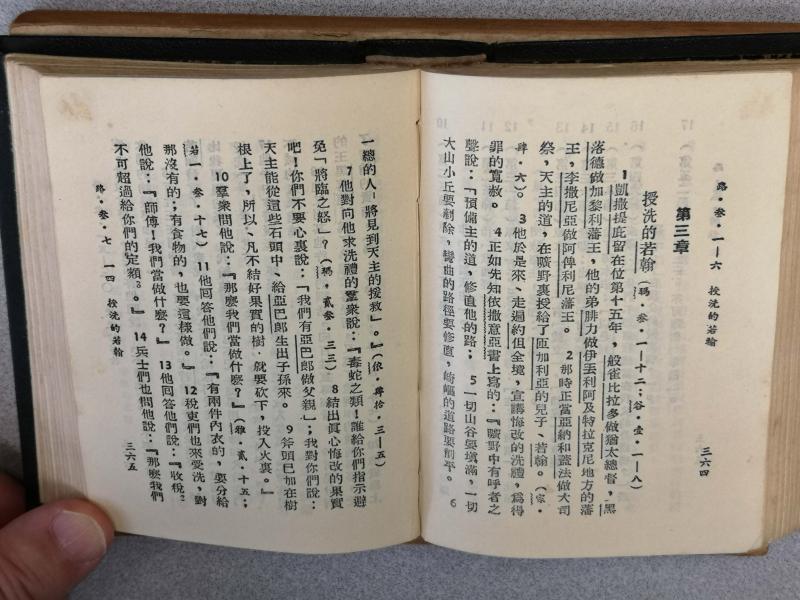 路·叁·一—六 授洗的若翰
三六四
第三章
授洗的若翰(瑪·叁·一—十二;谷·壹·一—八)
1 凱撒提庇留在位第十五年,般雀比拉多做猶太總督,黑
落德做加黎利藩王,他的弟腓力做伊丟利阿及特拉克尼地方的藩
王,李撒尼亞做阿俾利尼藩王。 2 那時正當亞納和蓋法做大司
祭,天主的道,在曠野裏授給了匝加利亞的兒子、若翰。
·肆·六)。 3 他於是來、走過約但全境,宣講悔改的洗禮,爲得
罪的寬赦。 4 正如先知依撒意亞書上寫的:『曠野中有呼者之
聲說:「預備主的道,修直他的路; 5 一切山谷要填滿,一切
大山小丘要剷除,彎曲的路徑要修直,崎嶇的道路要削平。 6
一總的人、將見到天主的援救」。』(依·肆拾·三—五)
7 他對向他求洗禮的羣衆說:『毒蛇之類!誰給你們指示避
免「將臨之怒」?(瑪·貳叁·三三) 8 結出眞心悔改的果實
吧!你們不要心裏說:「我們有亞巴郎做父親」;我對你們說:
天主能從這些石頭中、給亞巴郎生出子孫來。 9 斧頭巳加在樹
根上了,所以、凡不結好果實的樹·就要砍下,投入火裏。』
10 羣衆問他說:『那麼我們當做什麼?』(雅·貳·十五;
若一·叁·十七) 11 他回答他們說:『有兩件內衣的,要分給
那沒有的;有食物的,也要這樣做。』 12 稅吏們也來受洗,對
他說:『師傅!我們當做什麼?』 13 他回答他們說:『收稅?
不可超過給你們的定額。』 14 兵士們也問他說:『那麼我們
路·叁·七—一四 授洗的若翰
三六五